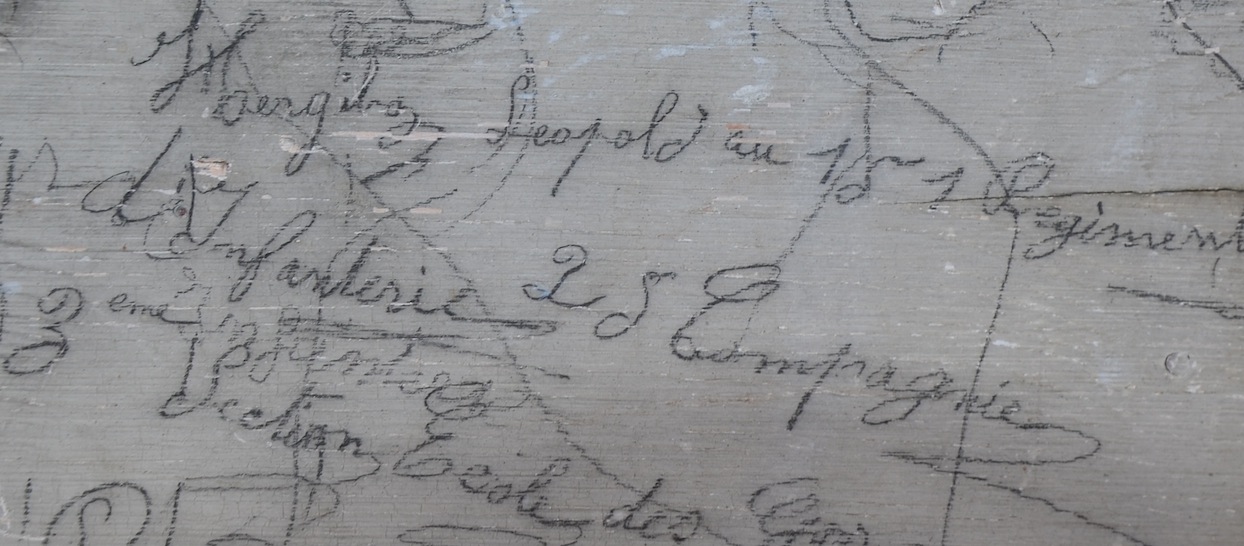 Leopold au 151 Regiment
d'Infanterie 25 Compagnie
3eme Section Ecole des